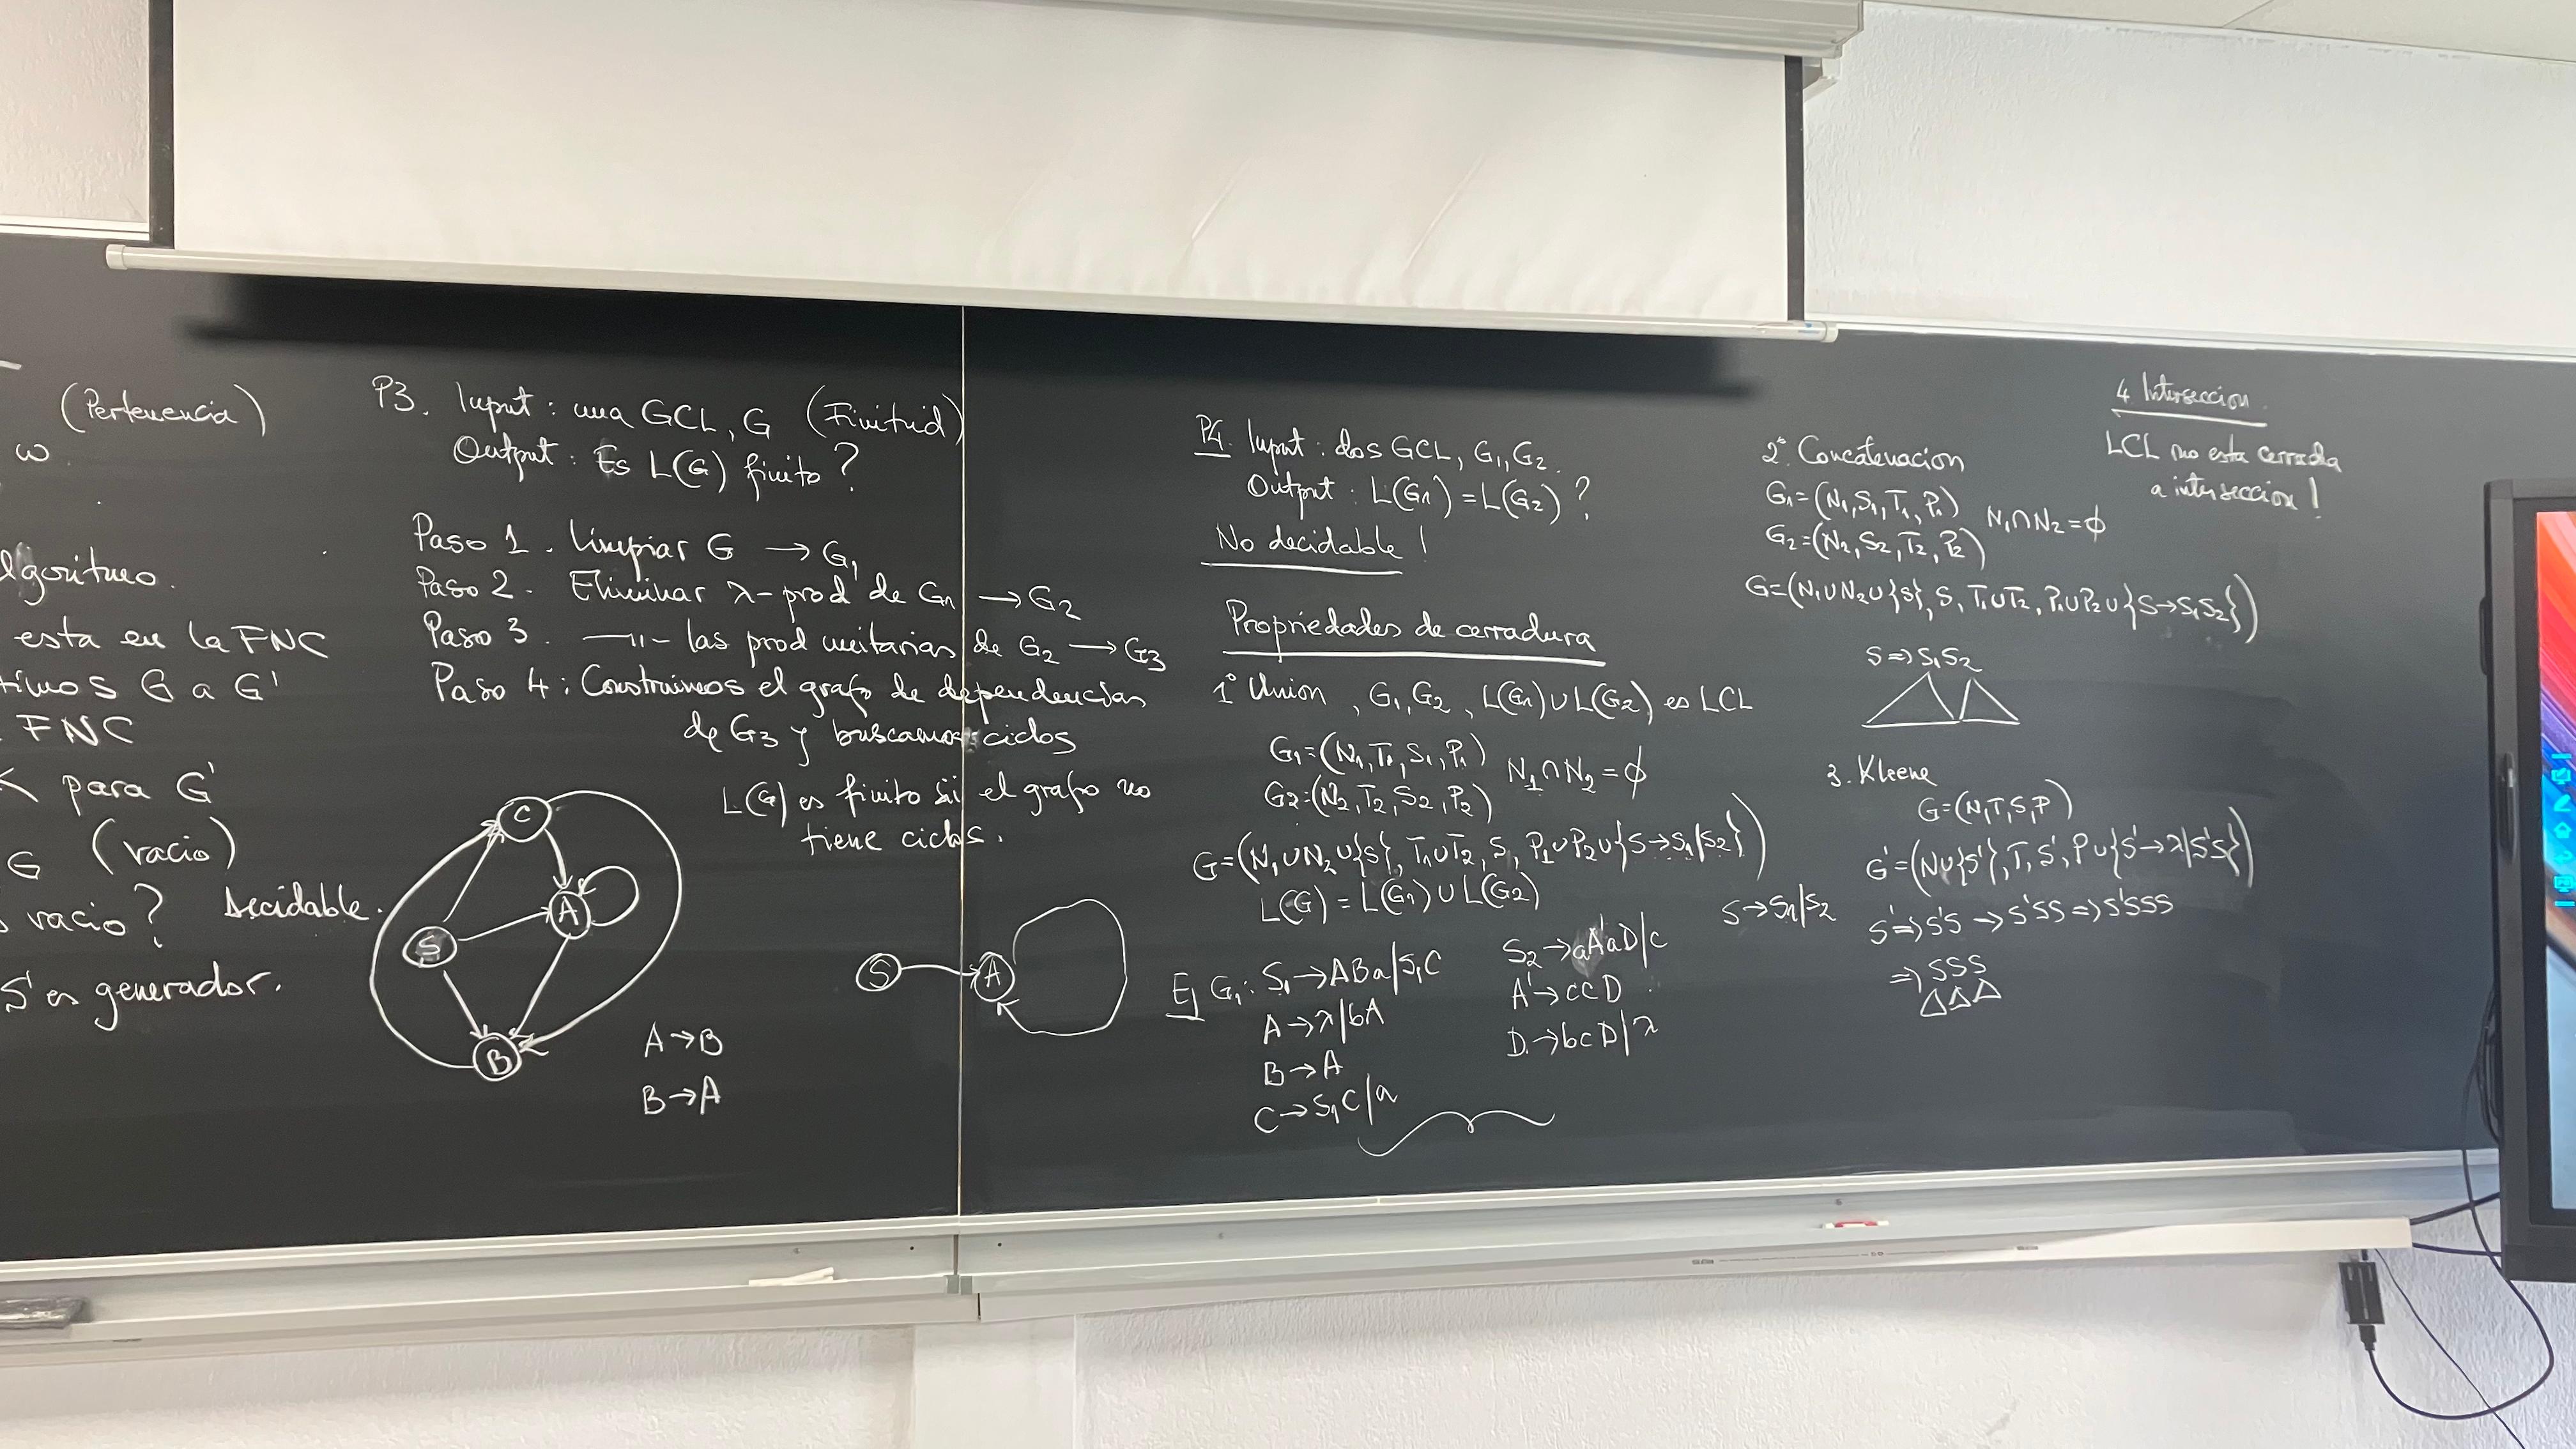 (Pertenencia)
w.
algoritmo.
esta en la FNC
timos G a G'
FNC
K para G'
G (vacio)
vacio? Decidable.
S es generador.
P3. Input: una GCL, G (Finitud)
Output: Es L(G) finito?
Paso 1. Limpiar G → G1
Paso 2. Eliminar λ-prod de G1 → G2
Paso 3. —"— las prod unitarias de G2 → G3
Paso 4: Construimos el grafo de dependencias
de G3 y buscamos ciclos
L(G) es finito sii el grafo no
tiene ciclos.
C
A
S
B
A → B
B → A
S
A
P4. Input: dos GCL, G1, G2.
Output: L(G1) = L(G2)?
No decidable!
Propriedades de cerradura
1º Union, G1, G2, L(G1)∪L(G2) es LCL
G1=(N1,T1,S1,P1)
G2=(N2,T2,S2,P2)
N1∩N2=ϕ
G=(N1∪N2∪{S}, T1∪T2, S, P1∪P2∪{S→S1|S2})
L(G) = L(G1)∪L(G2)
Ej G1: S1→ABa|S1C
A→λ|bA
B→A
C→S1C|a
S2→aA'aD|c
A'→ccD
D→bcD|λ
S→S1|S2
2º Concatenacion
G1=(N1,S1,T1,P1)
G2=(N2,S2,T2,P2)
N1∩N2=ϕ
G=(N1∪N2∪{S}, S, T1∪T2, P1∪P2∪{S→S1S2})
S⇒S1S2
3. Kleene
G=(N,T,S,P)
G'=(N∪{S'},T,S',P∪{S'→λ|S'S})
S'⇒S'S→S'SS⇒S'SSS
⇒SSS
4 Interseccion.
LCL no esta cerrada
a interseccion!